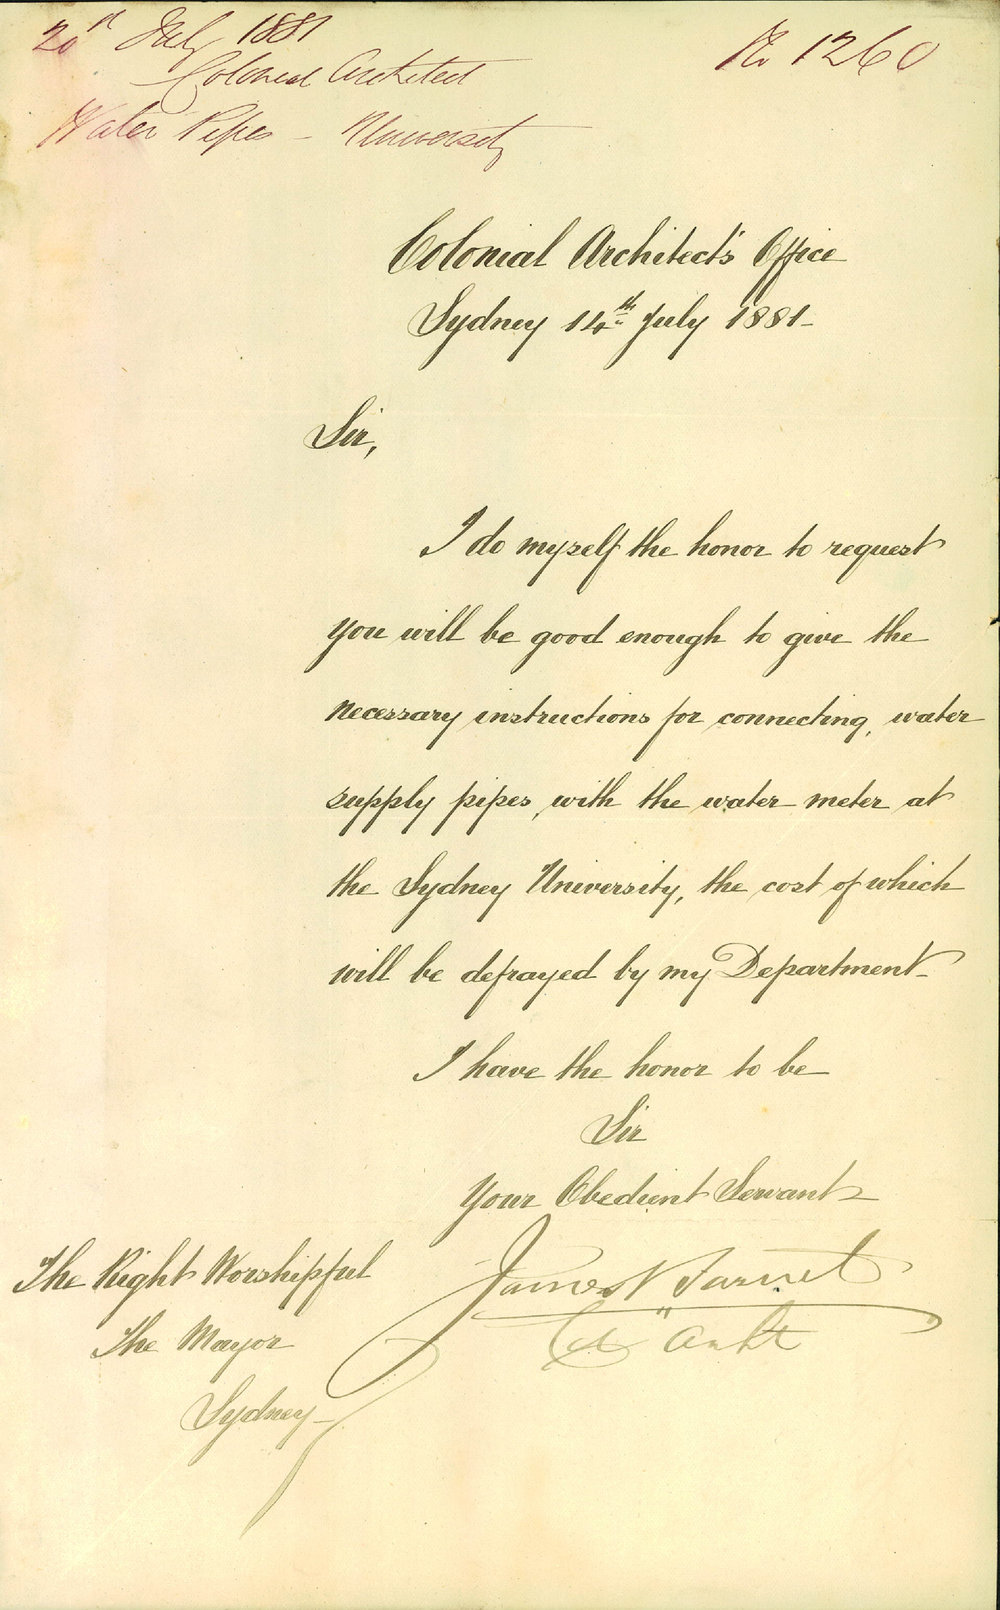 20th July 1881
No 1260
Colonial Architect
Water Pipes - University
Colonial Architect's Office
Sydney 14th July 1881-
Sir,
I do myself the honor to request
you will be good enough to give the
necessary instructions for connecting, water
supply pipes, with the water meter at
the Sydney University, the cost of which
will be defrayed by my Department-
I have the honor to be
Sir
Your Obedient Servant
James Barnet
Col Archt
The Right Worshipful
The Mayor
Sydney-